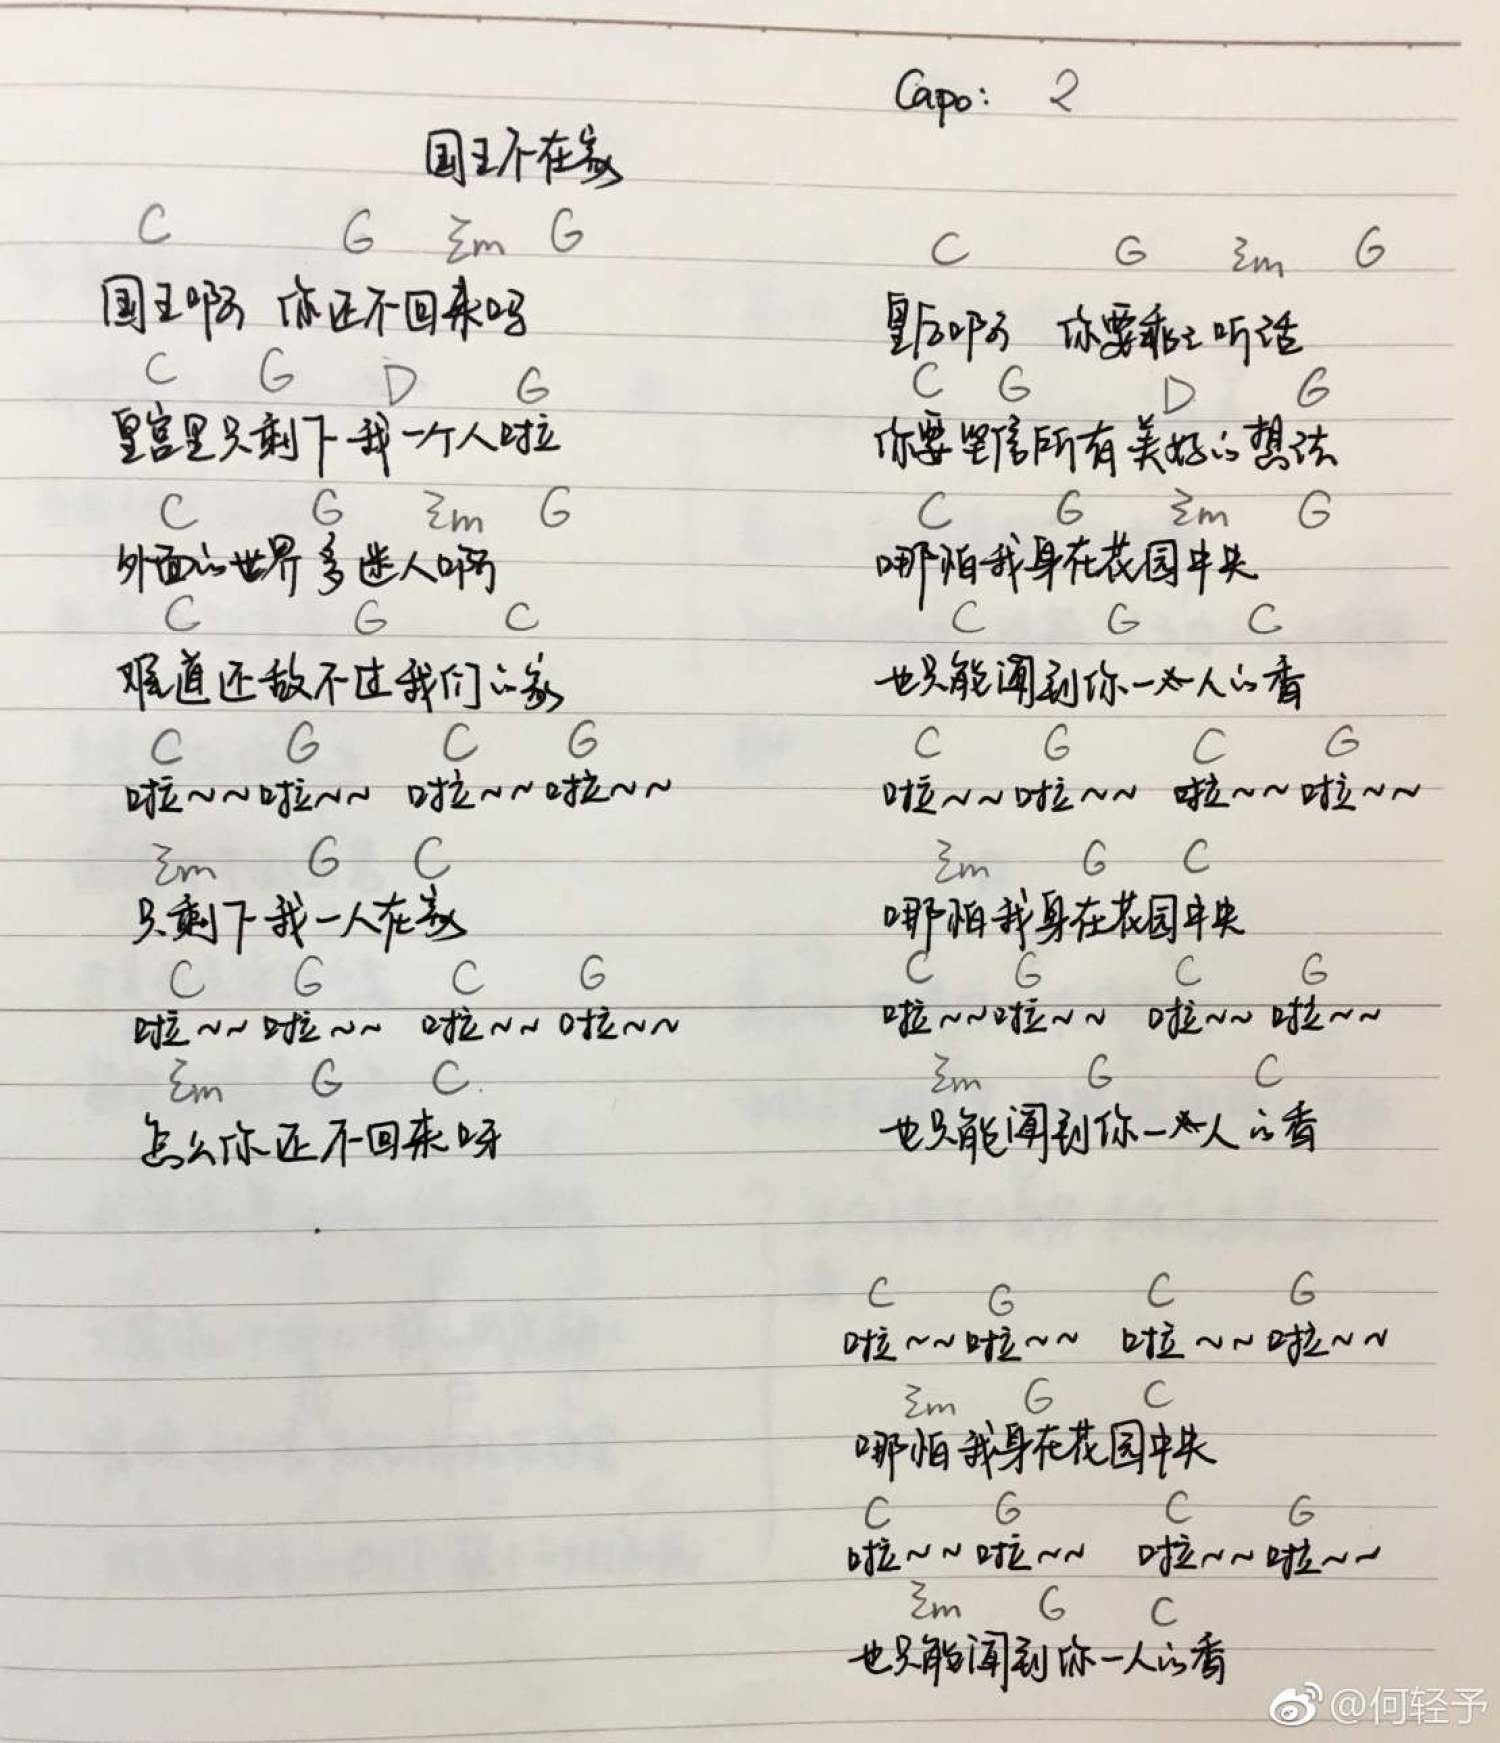 Capo: 2
国王不在家
C G Em G
国王啊 你还不回来吗
C G D G
皇宫里只剩下我一个人啦
C G Em G
外面的世界多迷人啊
C G C
难道还敌不过我们的家
C G C G
啦~~啦~~ 啦~~啦~~
Em G C
只剩下我一人在家
C G C G
啦~~啦~~ 啦~~啦~~
Em G C
怎么你还不回来呀
C G Em G
皇后啊 你要乖乖听话
C G D G
你要坚信所有美好的想法
C G Em G
哪怕我身在花园中央
C G C
也只能闻到你一人的香
C G C G
啦~~啦~~ 啦~~啦~~
Em G C
哪怕我身在花园中央
C G C G
啦~~啦~~ 啦~~啦~~
Em G C
也只能闻到你一人的香
C G C G
啦~~啦~~ 啦~~啦~~
Em G C
哪怕我身在花园中央
C G C G
啦~~啦~~ 啦~~啦~~
Em G C
也只能闻到你一人的香
@何轻予